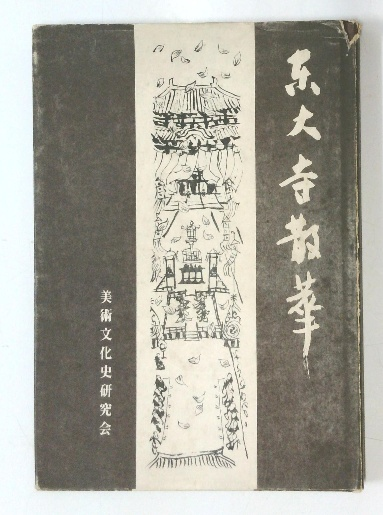 东大寺散華
美術文化史研究会